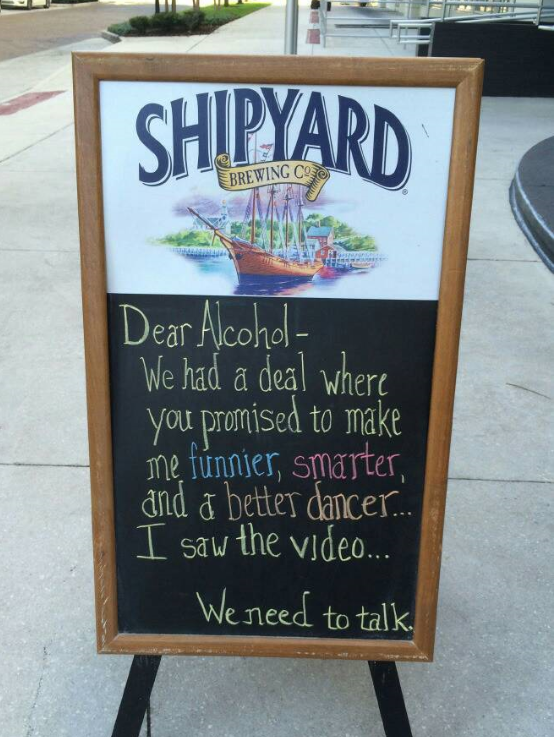 SHIPYARD
BREWING Co.
Dear Alcohol -
We had a deal where
you promised to make
me funnier, smarter,
and a better dancer...
I saw the video...
We need to talk.